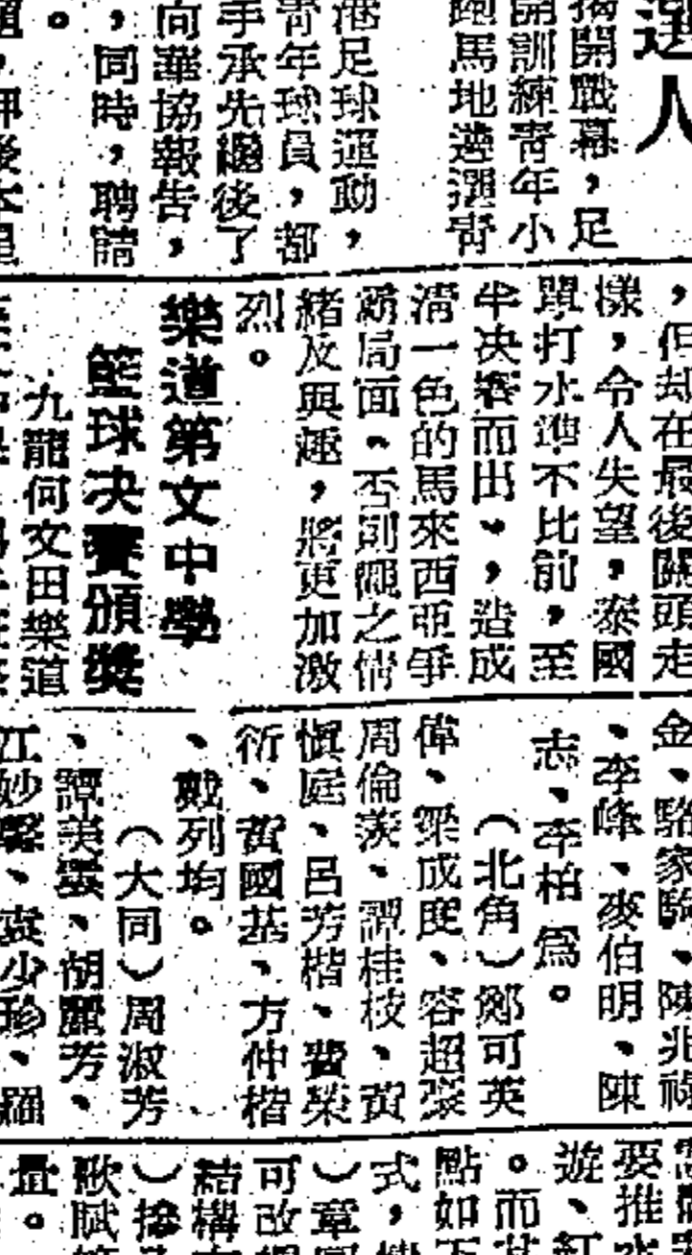 選人
揭開戰幕，足
開訓練青年小
跑馬地遴選青
港足球運動，
青年球員，都
手承先繼後了
向華協報告，
，同時，聘請
。
，但却在最後關頭走
樣，令人失望，泰國
單打水準不比前，至
半决賽而出、，造成
清一色的馬來西亞爭
霸局面。否則觀之情
緒及興趣，將更加激
烈。
樂道第文中學
籃球决賽頒獎
九龍何文田樂道
金、駱家駒、陳兆祿
、李峰、麥伯明、陳
志、李柏爲。
（北角）鄭可英
偉、梁成度、容超張
周倫羨、譚桂枝、黃
慎庭、呂芳楷、費榮
衍、黃國基、方仲楷
、戴列均。
（大同）周淑芳
、譚美雲、胡麗芳、
江妙嬋、袁少珍、羅
要推
遊、紅
。而其
點如下
式，
）章
可改
結構
）接
歌賦
畳。